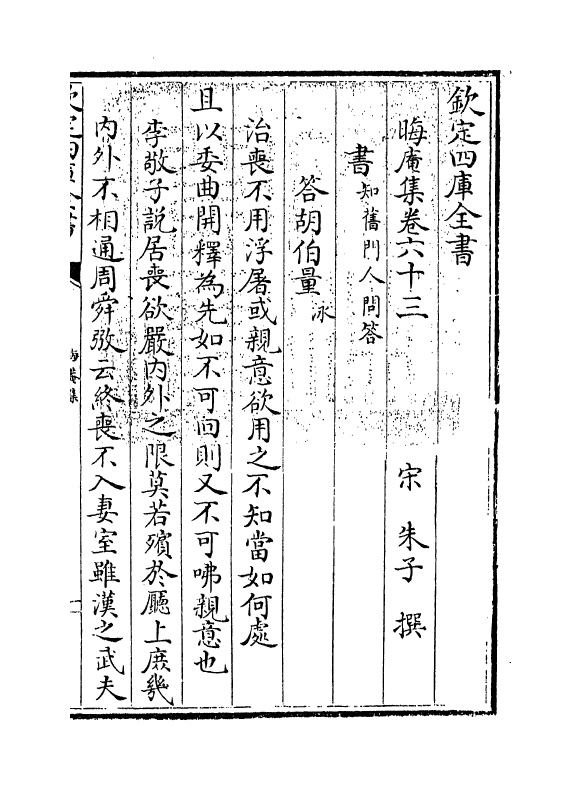 欽定四庫全書
晦庵集卷六十三
宋　朱子　撰
書知舊門人問答
答胡伯量泳
治喪不用浮屠或親意欲用之不知當如何處
且以委曲開釋為先如不可囘則又不可咈親意也
李敬子説居喪欲嚴内外之限莫若殯於廳上庶幾
内外不相通周舜弼云終喪不入妻室雖漢之武夫